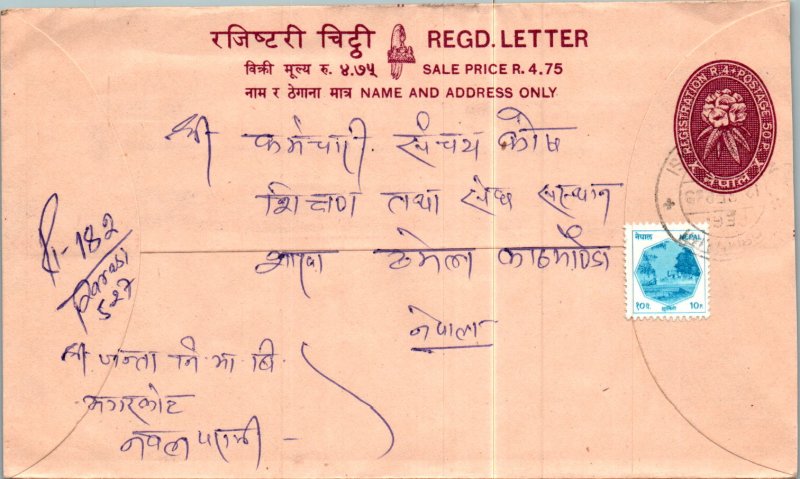 रजिष्टरी चिट्ठी REGD. LETTER
बिक्री मूल्य रु. ४.७५ SALE PRICE R. 4.75
नाम र ठेगाना मात्र NAME AND ADDRESS ONLY
REGISTRATION R.4+POSTAGE 50P.
नेपाल
श्री कर्मचारी संचय कोष
शिक्षण तथा संस्थान
शाखा ठमेल काठमाण्डौ
नेपाल
R-182
Parasi
527
नेपाल NEPAL
१०पै. 10P.
श्री जन्ता नि मा वि
नवल परासी